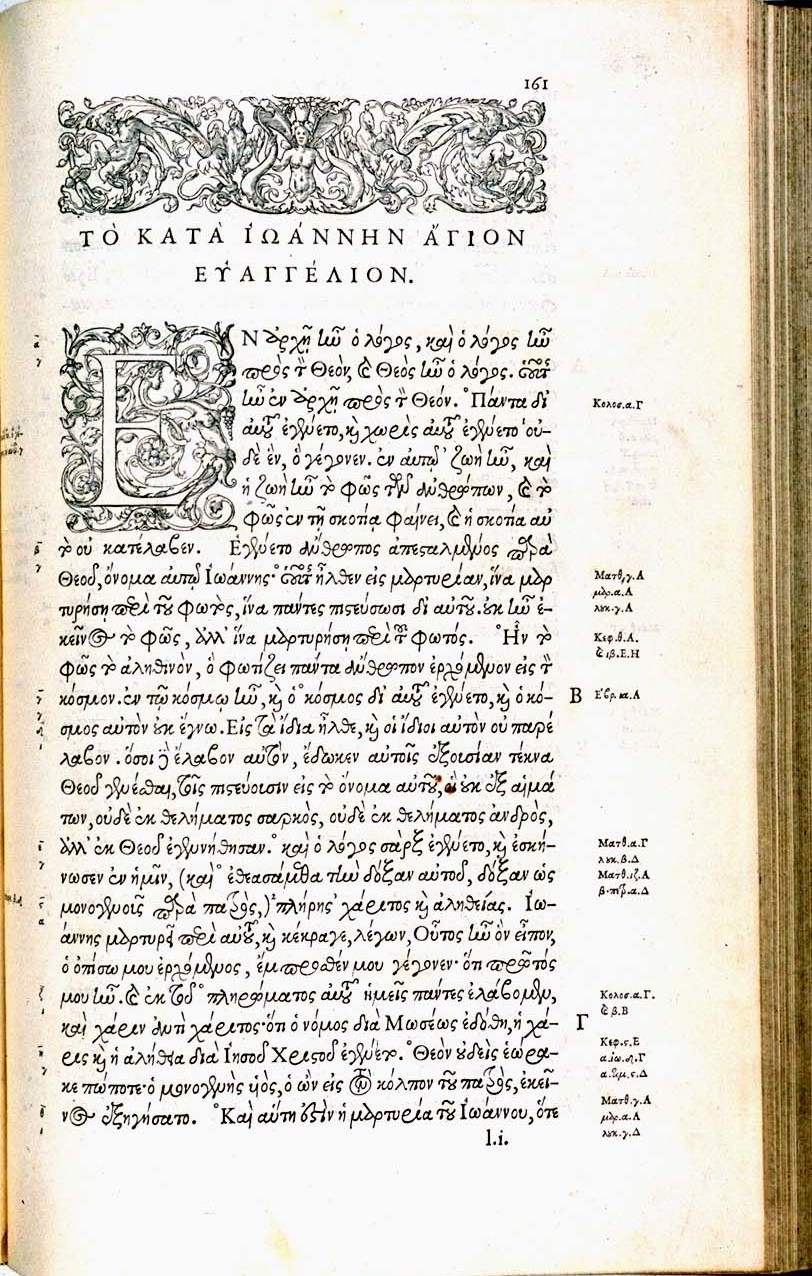 161
Τὸ ΚΑΤᾺ ἸΩΆΝΝΗΝ ἍΓΙΟΝ
ΕΥ̓ΑΓΓΈΛΙΟΝ.
ΕΝ ἀρχῇ ἦν ὁ λόγος, καὶ ὁ λόγος ἦν
πρὸς τὸν Θεὸν, καὶ Θεὸς ἦν ὁ λόγος. οὗτος
ἦν ἐν ἀρχῇ πρὸς τὸν Θεόν. Πάντα δι᾽
αὐτοῦ ἐγένετο, καὶ χωρὶς αὐτοῦ ἐγένετο οὐ-
δὲ ἓν, ὃ γέγονεν. ἐν αὐτῷ ζωὴ ἦν, καὶ
ἡ ζωὴ ἦν τὸ φῶς τῶν ἀνθρώπων, καὶ τὸ
φῶς ἐν τῇ σκοτίᾳ φαίνει, καὶ ἡ σκοτία αὐ
τὸ οὐ κατέλαβεν. Ἐγένετο ἄνθρωπος ἀπεσταλμένος παρὰ
Θεοῦ, ὄνομα αὐτῷ Ἰωάννης· οὗτος ἦλθεν εἰς μαρτυρίαν, ἵνα μαρ
τυρήσῃ περὶ τοῦ φωτὸς, ἵνα πάντες πιστεύσωσι δι᾽ αὐτοῦ. οὐκ ἦν ἐ-
κεῖνος τὸ φῶς, ἀλλ᾽ ἵνα μαρτυρήσῃ περὶ τοῦ φωτός. Ἦν τὸ
φῶς τὸ ἀληθινὸν, ὃ φωτίζει πάντα ἄνθρωπον ἐρχόμενον εἰς τὸν
κόσμον. ἐν τῷ κόσμῳ ἦν, καὶ ὁ κόσμος δι᾽ αὐτοῦ ἐγένετο, καὶ ὁ κό-
σμος αὐτὸν οὐκ ἔγνω. Εἰς τὰ ἴδια ἦλθε, καὶ οἱ ἴδιοι αὐτὸν οὐ παρέ
λαβον. ὅσοι δὲ ἔλαβον αὐτὸν, ἔδωκεν αὐτοῖς ἐξουσίαν τέκνα
Θεοῦ γενέσθαι, τοῖς πιστεύουσιν εἰς τὸ ὄνομα αὐτοῦ, οἳ οὐκ ἐξ αἱμά
των, οὐδὲ ἐκ θελήματος σαρκὸς, οὐδὲ ἐκ θελήματος ἀνδρὸς,
ἀλλ᾽ ἐκ Θεοῦ ἐγεννήθησαν. καὶ ὁ λόγος σὰρξ ἐγένετο, καὶ ἐσκή-
νωσεν ἐν ἡμῖν, (καὶ ἐθεασάμεθα τὴν δόξαν αὐτοῦ, δόξαν ὡς
μονογενοῦς παρὰ πατρὸς,) πλήρης χάριτος καὶ ἀληθείας. Ἰω-
άννης μαρτυρεῖ περὶ αὐτοῦ, καὶ κέκραγε, λέγων, Οὗτος ἦν ὃν εἶπον,
ὁ ὀπίσω μου ἐρχόμενος, ἔμπροσθέν μου γέγονεν· ὅτι πρῶτός
μου ἦν. καὶ ἐκ τοῦ πληρώματος αὐτοῦ ἡμεῖς πάντες ἐλάβομεν,
καὶ χάριν ἀντὶ χάριτος· ὅτι ὁ νόμος διὰ Μωσέως ἐδόθη, ἡ χά-
ρις καὶ ἡ ἀλήθεια διὰ Ἰησοῦ Χριστοῦ ἐγένετο. Θεὸν οὐδεὶς ἑώρα-
κε πώποτε· ὁ μονογενὴς υἱὸς, ὁ ὢν εἰς τὸν κόλπον τοῦ πατρὸς, ἐκεῖ-
νος ἐξηγήσατο. Καὶ αὕτη ἐστὶν ἡ μαρτυρία τοῦ Ἰωάννου, ὅτε
l.i.
Κολοσ.α.Γ
Ματθ.γ.Α
μαρ.α.Α
λουκ.γ.Α
Κεφ.θ.Α.
καὶ ιβ.Ε.Η
Β
Ἑβρ.ια.Α
Ματθ.α.Γ
λουκ.β.Δ
Ματθ.ιζ.Α
β.πέτρ.α.Δ
Κολοσ.α.Γ.
καὶ β.Β
Γ
Κεφ.ς.Ε
α.ἰω.δ.Γ
α.τιμ.ς.Δ
Ματθ.γ.Α
μαρ.α.Α
λουκ.γ.Δ